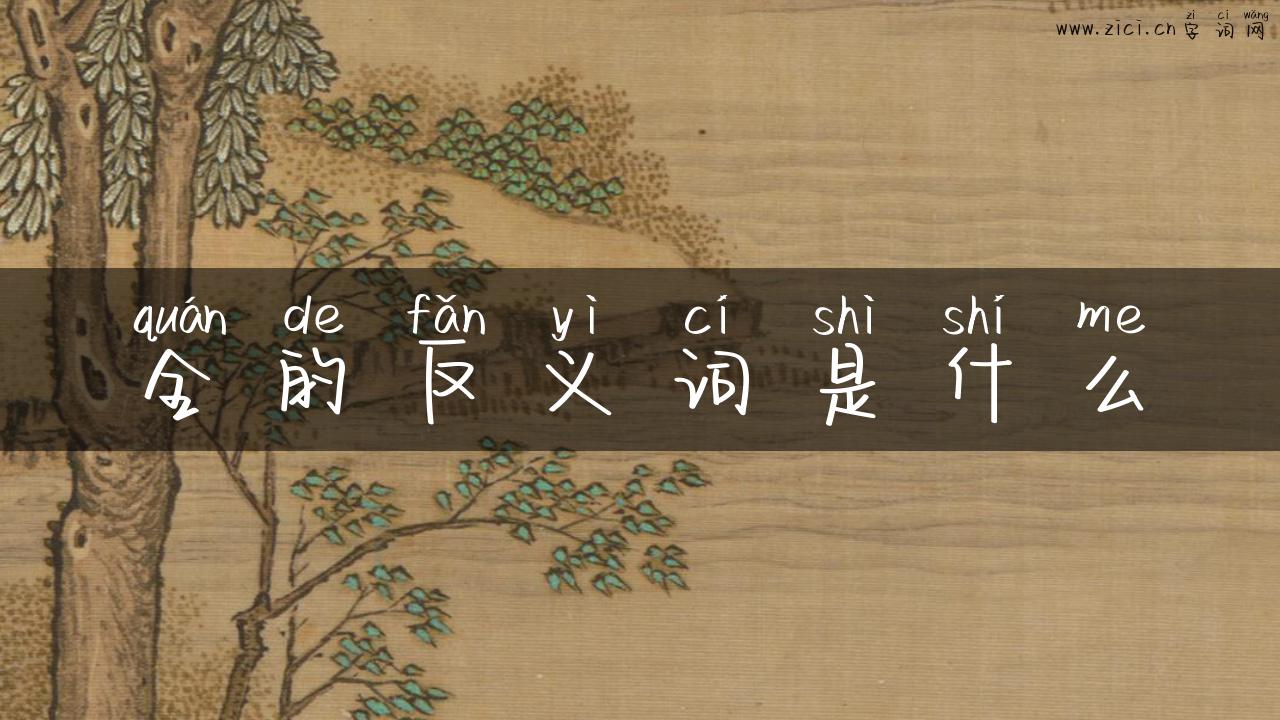 zì cí wǎng
www.zici.cn 字 词 网
quán de fǎn yì cí shì shí me
全 的 反 义 词 是 什 么